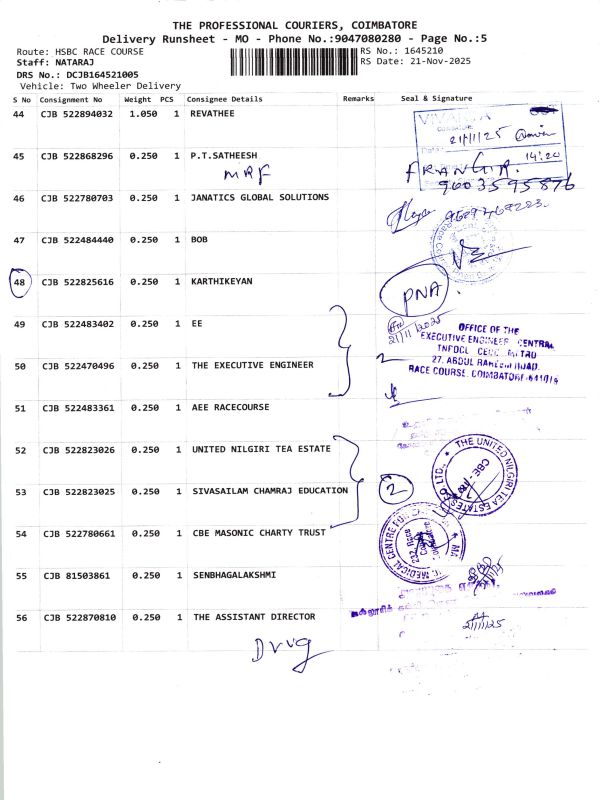 THE PROFESSIONAL COURIERS, COIMBATORE
Delivery Runsheet - MO - Phone No.:9047080280 - Page No.:5
Route: HSBC RACE COURSE
RS No.: 1645210
Staff: NATARAJ
RS Date: 21-Nov-2025
DRS No.: DCJB164521005
Vehicle: Two Wheeler Delivery
S No Consignment No Weight PCS Consignee Details Remarks Seal & Signature
44 CJB 522894032 1.050 1 REVATHEE
VIVANTA
COIMBATORE
21/11/25
14:20
45 CJB 522868296 0.250 1 P.T.SATHEESH
MRF
9603595876
46 CJB 522780703 0.250 1 JANATICS GLOBAL SOLUTIONS
47 CJB 522484440 0.250 1 BOB
48 CJB 522825616 0.250 1 KARTHIKEYAN
PNA
49 CJB 522483402 0.250 1 EE
21/11/2025
OFFICE OF THE
EXECUTIVE ENGINEER CENTRAL
50 CJB 522470496 0.250 1 THE EXECUTIVE ENGINEER
27. ABDUL RAHEEM ROAD.
RACE COURSE. COIMBATORE-641018
51 CJB 522483361 0.250 1 AEE RACECOURSE
52 CJB 522823026 0.250 1 UNITED NILGIRI TEA ESTATE
THE UNITED NILGIRI TEA ESTATES CO LTD.,
CBE-
53 CJB 522823025 0.250 1 SIVASAILAM CHAMRAJ EDUCATION
2
54 CJB 522780661 0.250 1 CBE MASONIC CHARTY TRUST
MEDICAL CENTRE FOR
232, Race
55 CJB 81503861 0.250 1 SENBHAGALAKSHMI
56 CJB 522870810 0.250 1 THE ASSISTANT DIRECTOR
21/11/25
Drug